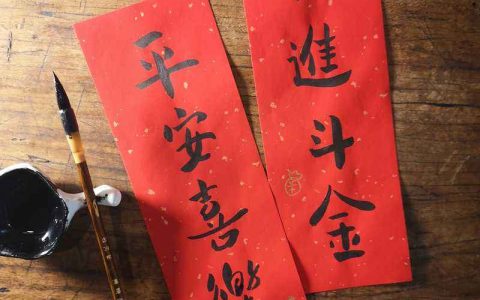 平安喜樂
進斗金